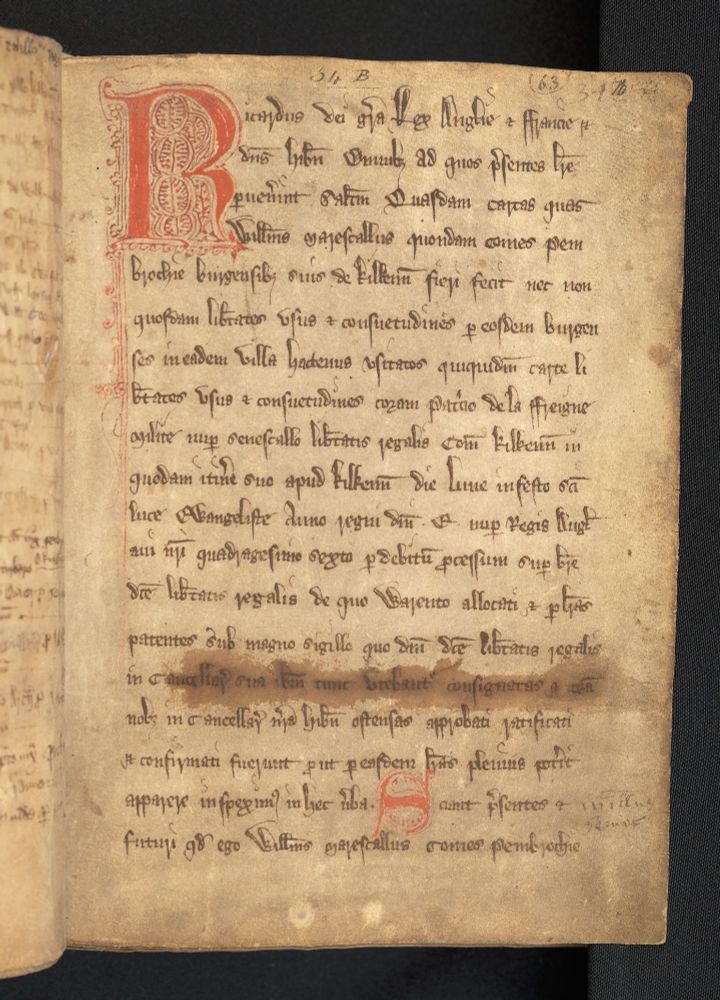 34 B
(63
Ricardus dei gr̄a Rex Anglie ⁊ ffrancie ⁊
dn̄s hib̄n Omnibꝫ ad quos p̄sentes lr̄e
ꝑuen̄int Salt̄m Quasdam cartas quas
Will̄ms marescallus quondam comes pem
brochie burgensibꝫ suis de kilkenn̄ fieri fecit nec non
quosdam lib̄tates vsus ⁊ consuetudines ꝑ eosdem burgen
ses in eadem villa hactenus vsitatos quiquidm̄ carte li
b̄tates vsus ⁊ consuetudines coram pat̄cio de la ffreigne
milite nuꝑ senescallo lib̄tatis regalis Com̄ kilkenn̄ in
quodam itin̄e suo apud kilkenn̄ die lune in festo sc̄i
luce Ewangeliste Anno regni dn̄i .E. nuꝑ Regis Angl̄
aui nr̄i quadragesimo sexto ꝑ debitū ꝓcessum suꝑ br̄e
dc̄e lib̄tatis regalis de quo Warento allocati ⁊ ꝑ lr̄as
patentes sub magno sigillo quo dn̄i dc̄e lib̄tatis regalis
in Cancellar̄ sua ib̄m tunc vtebant᷑ consignatas ⁊ cor̄a
nobꝫ in Cancellar̄ nr̄a hib̄n ostensas approbati ratificati
⁊ confirmati fuerunt ꝓut ꝑ easdem lr̄as plenius pot̄it
apparere inspeximꝰ in hec v̄ba. Sciant p̄sentes ⁊
futuri qd̄ ego Will̄ms marescallus Comes pembrochie